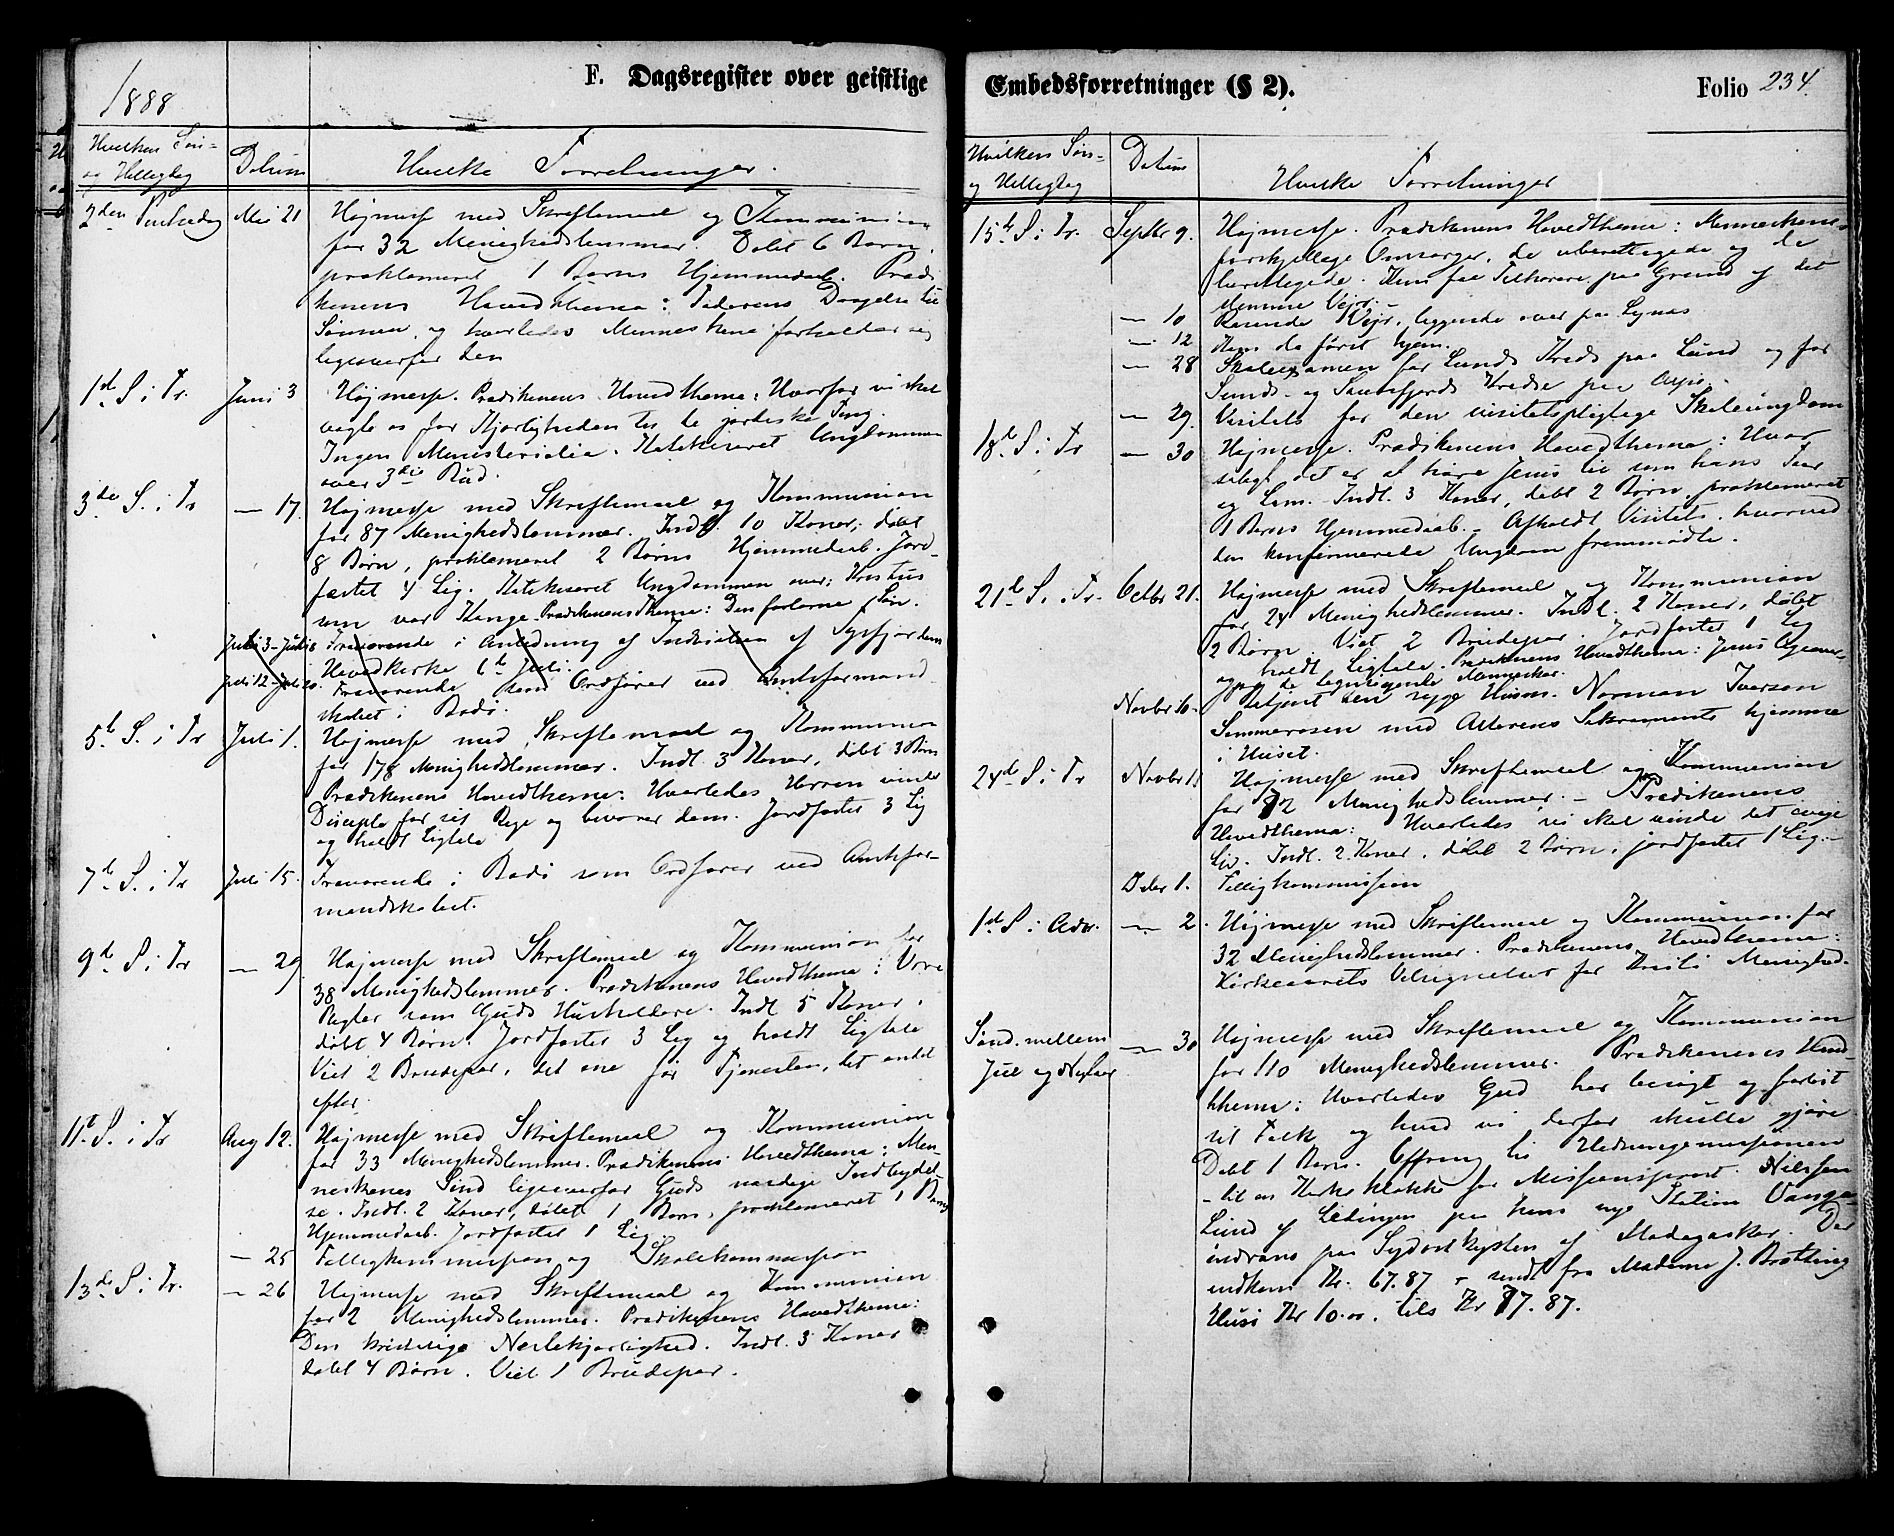 1888
F. Dagsregister over geistlige
Hvilken Søn-
og Helligdag
Datum
Hvilke Forretninger.
2den Pintsedag
Mai 21
Højmesse med Skriftemaal og Kommunion
for 32 Menighedslemmer. Døbt 6 Børn,
proklameret 1 Barns Hjemmedaab. Prædi
kenens Hovedthema: Faderens Dragelse til
Sønnen, og hvorledes Menneskene forholder sig
ligeoverfor den
1ste S. i Tr.
Juni 3
Højmesse. Prædikenens Hovedthema: Hvorfor vi skal
vogte os for Kjærligheden til de jordiske Ting.
Ingen Ministerialia. Katekiseret Ungdommen
over 3die Bud.
3die S. i Tr
— 17.
Højmesse med Skriftemaal og Kommunion
for 87 Menighedslemmer. Indl. 10 Koner, døbt
8 Børn, proklameret 2 Børns Hjemmedaab. Jord-
fæstet 4 Lig. Katekiseret Ungdommen over: Kristus
som vor Konge. Prædikenens Thema: Den fortabte Søn.
Juli 3 - Juli
Fraværende i Anledning af Indvielsen af
Hovedkirke 6te Juli.
Juli 12 - Juli 20.
Fraværende som Ordfører ved Amtsformand-
skabet i Bodø.
5te S. i Tr
Juli 1.
Højmesse med Skriftemaal og Kommunion
for 178 Menighedslemmer. Indl. 3 Koner, døbt 3 Børn
Prædikenens Hovedthema: Hvorledes Herren vinder
Disciple for sit Rige og bevarer dem. Jordfæstet 3 Lig
og holdt Ligtale
7de S. i Tr
Juli 15.
Fraværende i Bodø som Ordfører ved Amtsfor-
mandskabet.
9de S. i Tr
— 29
Højmesse med Skriftemaal og Kommunion for
38 Menighedslemmer. Prædikenens Hovedthema: Vore
Pligter som Guds Husholdere. Indl 5 Koner,
døbt 4 Børn. Jordfæstet 3 Lig og holdt Ligtale
Viet 2 Brudepar, det ene før Tjenesten, det andet
efter.
11te S. i Tr
Aug 12.
Højmesse med Skriftemaal og Kommunion
for 33 Menighedslemmer. Prædikenens Hovedthema: Men-
neskenes Sind ligeoverfor Guds naadige Indbydel-
se. Indl. 2 Koner, døbt 1 Barn, proklameret 1 Barns
Hjemmedaab. Jordfæstet 1 Lig
— 25
Fattigkommission og Skolekommission
13de S. i Tr.
— 26
Højmesse med Skriftemaal og Kommunion
for 2 Menighedslemmer. Prædikenens Hovedthema:
Den kristelige Næstekjærlighed. Indl. 3 Koner
døbt 4 Børn. Viet 1 Brudepar.
Embedsforretninger (§ 2).
Folio 234.
Hvilken Søn-
og Helligdag
Datum
Hvilke Forretninger
15de S. i Tr.
Septbr 9.
Højmesse. Prædikenens Hovedthema: Menneskenes
forskjellige Omsorger, de uberettigede og de
berettigede. Kun faa Tilhørere paa Grund af det
slemme Vejr.
— 10
Rasende Vejr, liggende over paa
— 12
Kom da først hjem.
— 28
Skoleexamen for Lunds Kreds paa Lund og for
Sunds- og Kredse paa
— 29.
Visitats for den visitatspligtige Skoleungdom
18de S. i Tr
— 30
Højmesse. Prædikenens Hovedthema: Hvor
saligt det er at høre Jesus til som hans Faar
og Lam. Indl. 3 Koner, døbt 2 Børn, proklameret
1 Barns Hjemmedaab. Afholdt Visitats, hvorved
den konfirmerede Ungdom fremmødte.
21de S. i Tr.
Octbr 21.
Højmesse med Skriftemaal og Kommunion
for 24 Menighedslemmer. Indl. 2 Koner, døbt
2 Børn. Viet 2 Brudepar. Jordfæstet 1 Lig
og holdt Ligtale. Prædikenens Hovedthema: Jesus
de Mennesker.
Novbr 10.
Betjent den syge Husm. Norman Iversen
Sommerosen med Alterens Sakramente hjemme
i Huset.
24de S. i Tr
Novbr 11
Højmesse med Skriftemaal og Kommunion
for 72 Menighedslemmer. — Prædikenens
Hovedthema: Hvorledes vi skal vinde det evige
Liv. Indl. 2 Koner, døbt 2 Børn, jordfæstet 1 Lig. —
Decbr 1.
Fattigkommission
1ste S. i Adv.
— 2.
Højmesse med Skriftemaal og Kommunion for
32 Menighedslemmer. Prædikenens Hovedthema:
Kirkeaarets Velsignelser for Kristi Menighed.
Sønd. mellem
Jul og Nytaar
— 30
Højmesse med Skriftemaal og Kommunion
for 110 Menighedslemmer. Prædikenens Hoved-
thema: Hvorledes Gud har besøgt og forløst
sit Folk og hvad vi derfor skulle gjøre
Døbt 1 Barn. Offring til Hedningemissionen
- til en Kirkeklokke for Missionsprest Nilssen
Lund af Lødingen paa hans nye Station Vanga-
indrano paa Sydostkysten af Madagaskar. Der
indkom Kr. 67.87 + sendt fra Madame J. Brotting
Husø Kr 10.00, tils Kr 77.87.